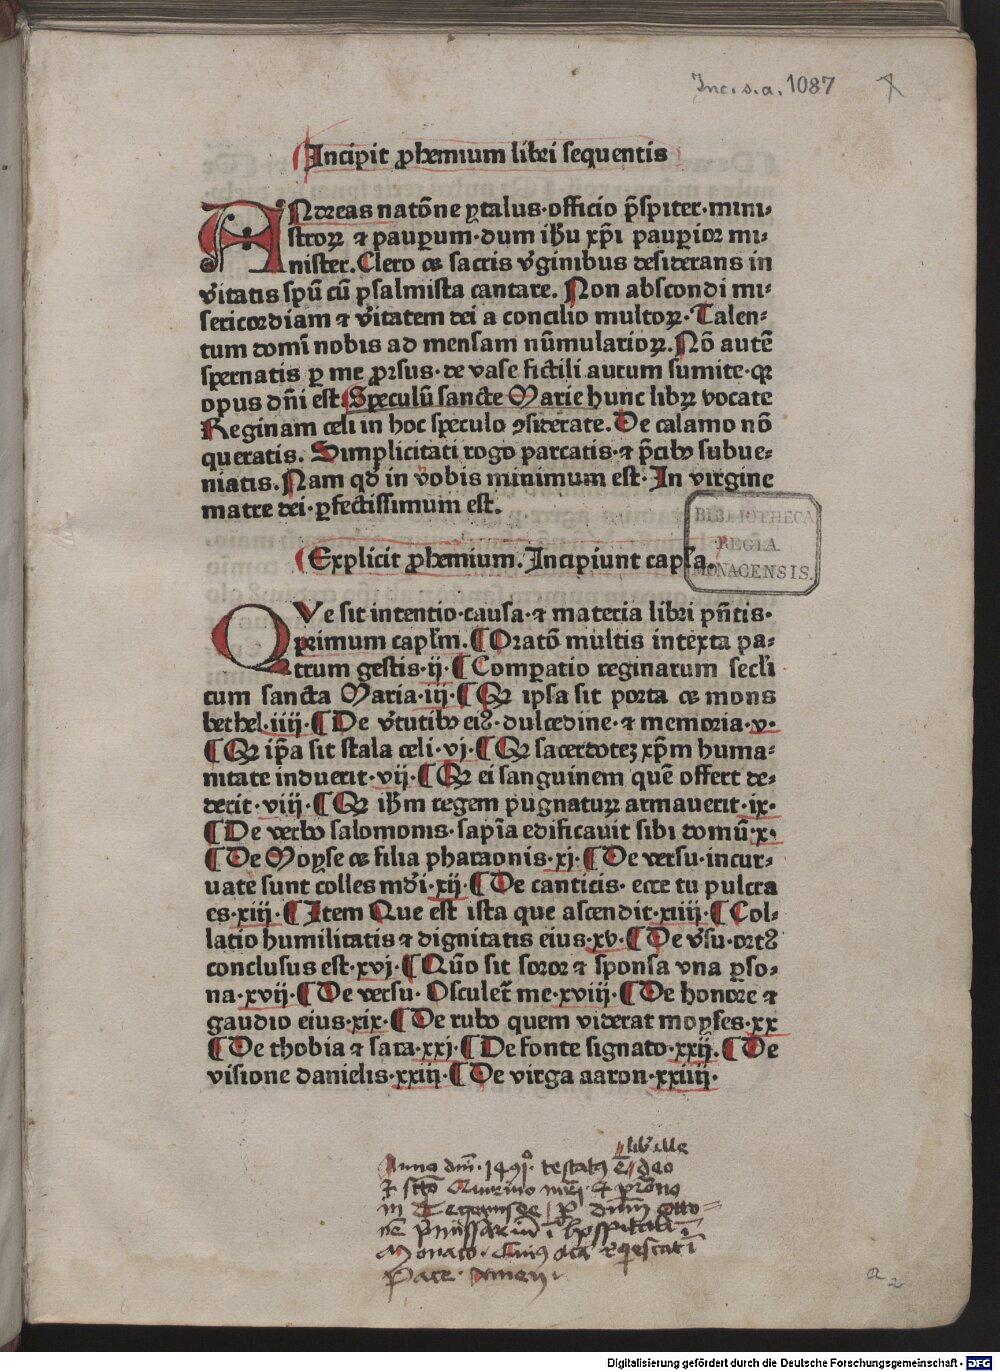 Inc. s. a. 1087
Incipit ꝓhemium libri sequentis
ANdreas natōne ytalus·officio p̄spiter·mini⸗
stroꝝ ⁊ pauꝑum·dum ih̄u xp̄i pauꝑior mi⸗
nister. Clero ac sacris v̓ginibus desiderans in
v̓itatis spū cū psalmista cantare. Non abscondi mi⸗
sericordiam ⁊ v̓itatem dei a concilio multoꝝ·Talen⸗
tum domī nobis ad mensam nūmularioꝝ. Nō autē
spernatis ꝑ me ꝓrsus·de vase fictili aurum sumite·qꝛ
opus dn̄i est Speculū sancte Marie hunc librꝫ vocate
Reginam celi in hoc speculo ꝯsiderate. De calamo nō
queratis. Simplicitati rogo parcatis·⁊ p̄cibꝫ subue⸗
niatis. Nam qd̓ in vobis minimum est·In virgine
matre dei·ꝑfectissimum est.
BIBLIOTHECA
REGIA
MONACENSIS.
Explicit ꝓhemium. Incipiunt capl̓a.
QVe sit intentio·causa·⁊ materia libri pn̄tis·
primum capl̓m. ¶ Oratō multis intexta pa⸗
trum gestis·ij·¶ Comꝑatio reginarum secl̓i
cum sancta Maria·iij·¶ Qꝛ ipsa sit porta ac mons
bethel·iiij·¶ De v̓tutibꝫ eiꝰ·dulcedine·⁊ memoria·v·
¶ Qꝛ ip̄a sit scala celi·vj·¶ Qꝛ sacerdoteꝫ xp̄m huma⸗
nitate induerit·vij·¶ Qꝛ ei sanguinem quē offert de⸗
derit·viij·¶ Qꝛ ih̄m regem pugnaturꝝ armauerit·ix·
¶ De verbo salomonis·sapīa edificauit sibi domū·x·
¶ De Moyse ac filia pharaonis·xj·¶ De versu·incur⸗
uate sunt colles mūdi·xij·¶ De canticis·ecce tu pulcra
es·xiij·¶ Item Que est ista que ascendit·xiiij·¶ Col⸗
latio humilitatis ⁊ dignitatis eius·xv·¶ De v̓su·ortꝰ
conclusus est·xvj·¶ Quō sit soror ⁊ sponsa vna ꝑso⸗
na·xvij·¶ De versu·Osculet̄ me·xviij·¶ De honore ⁊
gaudio eius·xix·¶ De rubo quem viderat moyses·xx
¶ De thobia ⁊ sara·xxj·¶ De fonte signato·xxij·¶ De
visione danielis·xxiij·¶ De virga aaron·xxiiij·
lib̓ ille
Anno dm̄·1491°·testatꝰ ē deo
⁊ scto Quirino
in Tegernsee ꝑ dnm̄ Otto⸗
nē p̄missariū ī hospitali
Monaco·Cuiꝰ aīa reqͥescat ī
Pace·Amen
a 2
Digitalisierung gefördert durch die Deutsche Forschungsgemeinschaft - DFG